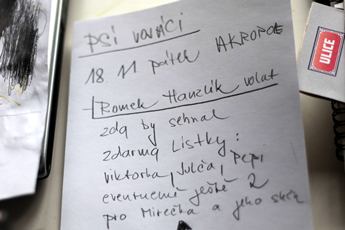 PSÍ VOJÁCI
18 11 pátek AKROPOLE
Romek Hanzlík volat
zda by sehnal
zdarma Listky:
viktorka, Julča, Pepi
eventuelně ještě 2
pro Mirečka a jeho
ULICE